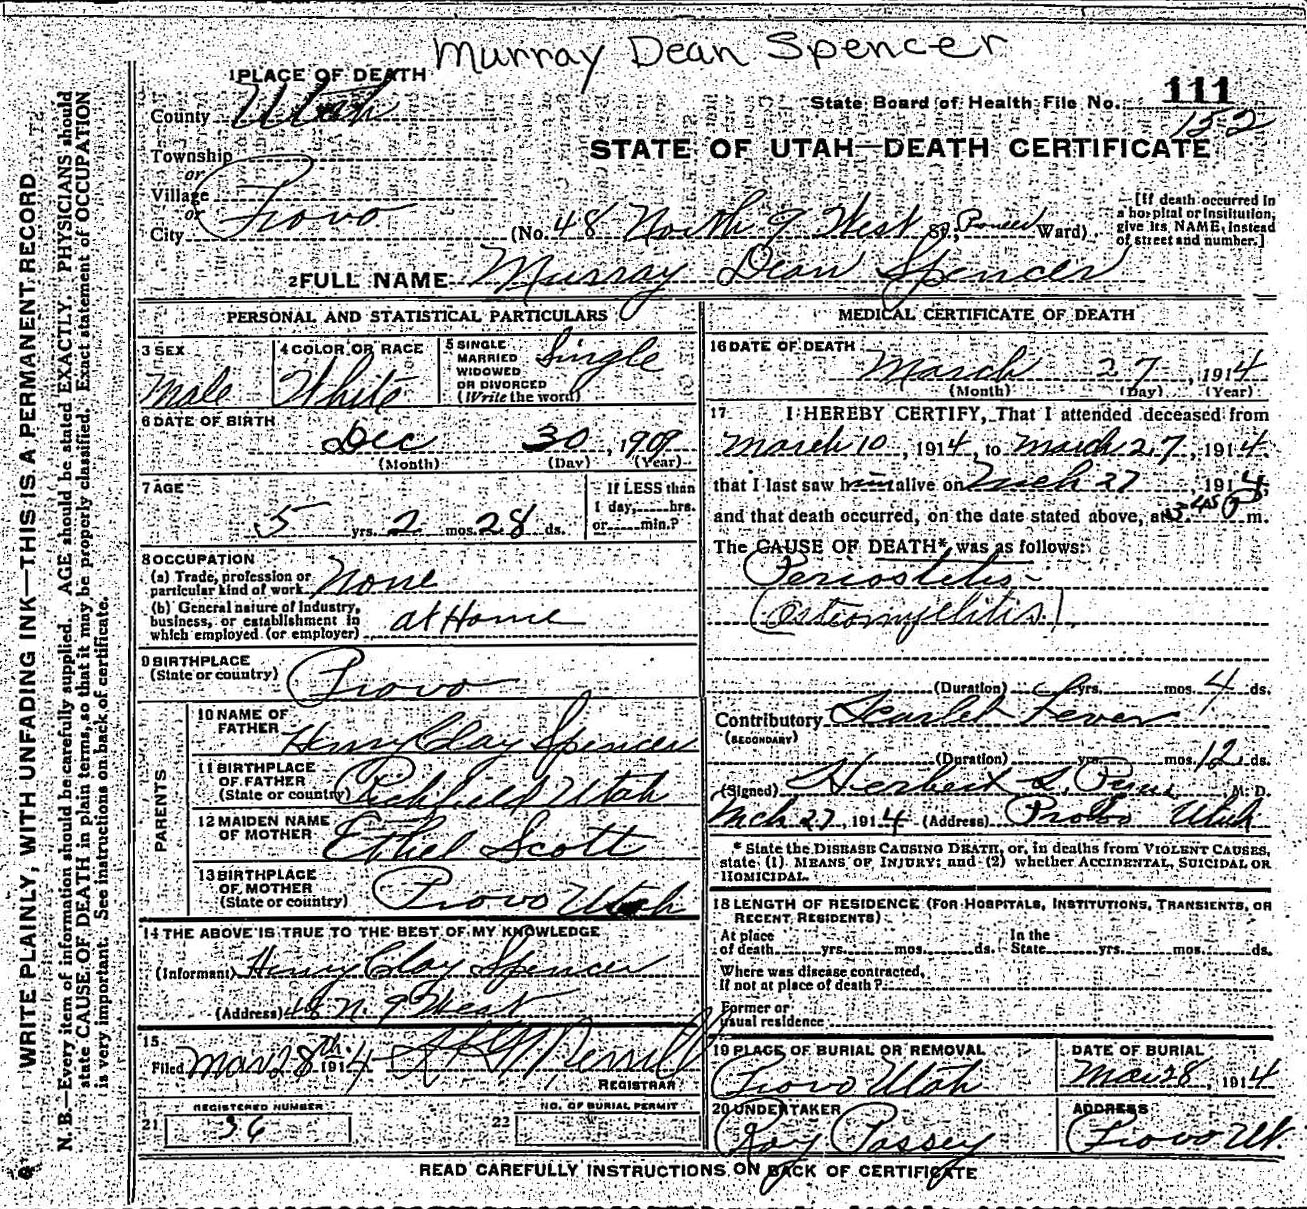 Murray Dean Spencer
1 PLACE OF DEATH
County Utah
State Board of Health File No. 111
152
STATE OF UTAH—DEATH CERTIFICATE
Township
or
Village
or
City Provo
(No. 48 North 9 West St., Pioneer Ward)
[If death occurred in a hospital or institution, give its NAME, instead of street and number.]
2 FULL NAME Murray Dean Spencer
PERSONAL AND STATISTICAL PARTICULARS
3 SEX
Male
4 COLOR OR RACE
White
5 SINGLE
MARRIED
WIDOWED
OR DIVORCED
(Write the word)
Single
6 DATE OF BIRTH
Dec 30, 1908
(Month) (Day) (Year)
7 AGE
5 yrs. 2 mos. 28 ds.
If LESS than
1 day, hrs.
or min.?
8 OCCUPATION
(a) Trade, profession or
particular kind of work None
(b) General nature of industry,
business, or establishment in
which employed (or employer) at Home
9 BIRTHPLACE
(State or country) Provo
PARENTS
10 NAME OF
FATHER Henry Clay Spencer
11 BIRTHPLACE
OF FATHER
(State or country) Richfield Utah
12 MAIDEN NAME
OF MOTHER Ethel Scott
13 BIRTHPLACE
OF MOTHER
(State or country) Provo Utah
14 THE ABOVE IS TRUE TO THE BEST OF MY KNOWLEDGE
(Informant) Henry Clay Spencer
(Address) 48 N. 9 West
15
Filed Mar 28th 1914 Merrill
REGISTRAR
REGISTERED NUMBER
21 36
NO. OF BURIAL PERMIT
22
MEDICAL CERTIFICATE OF DEATH
16 DATE OF DEATH
March 27, 1914
(Month) (Day) (Year)
17 I HEREBY CERTIFY, That I attended deceased from
March 10, 1914, to March 27, 1914.
that I last saw him alive on Mch 27, 1914,
and that death occurred, on the date stated above, at 3 45 P m.
The CAUSE OF DEATH*, was as follows:
Periostitis-
(Osteomyelitis)
(Duration) yrs. mos. 4 ds.
Contributory Scarlet Fever
(SECONDARY)
(Duration) yrs. mos. 12 ds.
(Signed) Herbert S. Pyne, M. D.
Mch 27, 1914 (Address) Provo Utah
* State the DISEASE CAUSING DEATH, or, in deaths from VIOLENT CAUSES,
state (1) MEANS OF INJURY; and (2) whether ACCIDENTAL, SUICIDAL OR
HOMICIDAL.
18 LENGTH OF RESIDENCE (FOR HOSPITALS, INSTITUTIONS, TRANSIENTS, OR
RECENT RESIDENTS)
At place
of death yrs. mos. ds.
In the
State yrs. mos. ds.
Where was disease contracted,
If not at place of death?
Former or
usual residence
19 PLACE OF BURIAL OR REMOVAL
Provo Utah
DATE OF BURIAL
Mar 28, 1914
20 UNDERTAKER
Ray Passey
ADDRESS
Provo Ut
READ CAREFULLY INSTRUCTIONS ON BACK OF CERTIFICATE
WRITE PLAINLY, WITH UNFADING INK—THIS IS A PERMANENT RECORD
N. B.—Every item of information should be carefully supplied. AGE should be stated EXACTLY. PHYSICIANS should
state CAUSE OF DEATH in plain terms, so that it may be properly classified. Exact statement of OCCUPATION
is very important. See instructions on back of certificate.